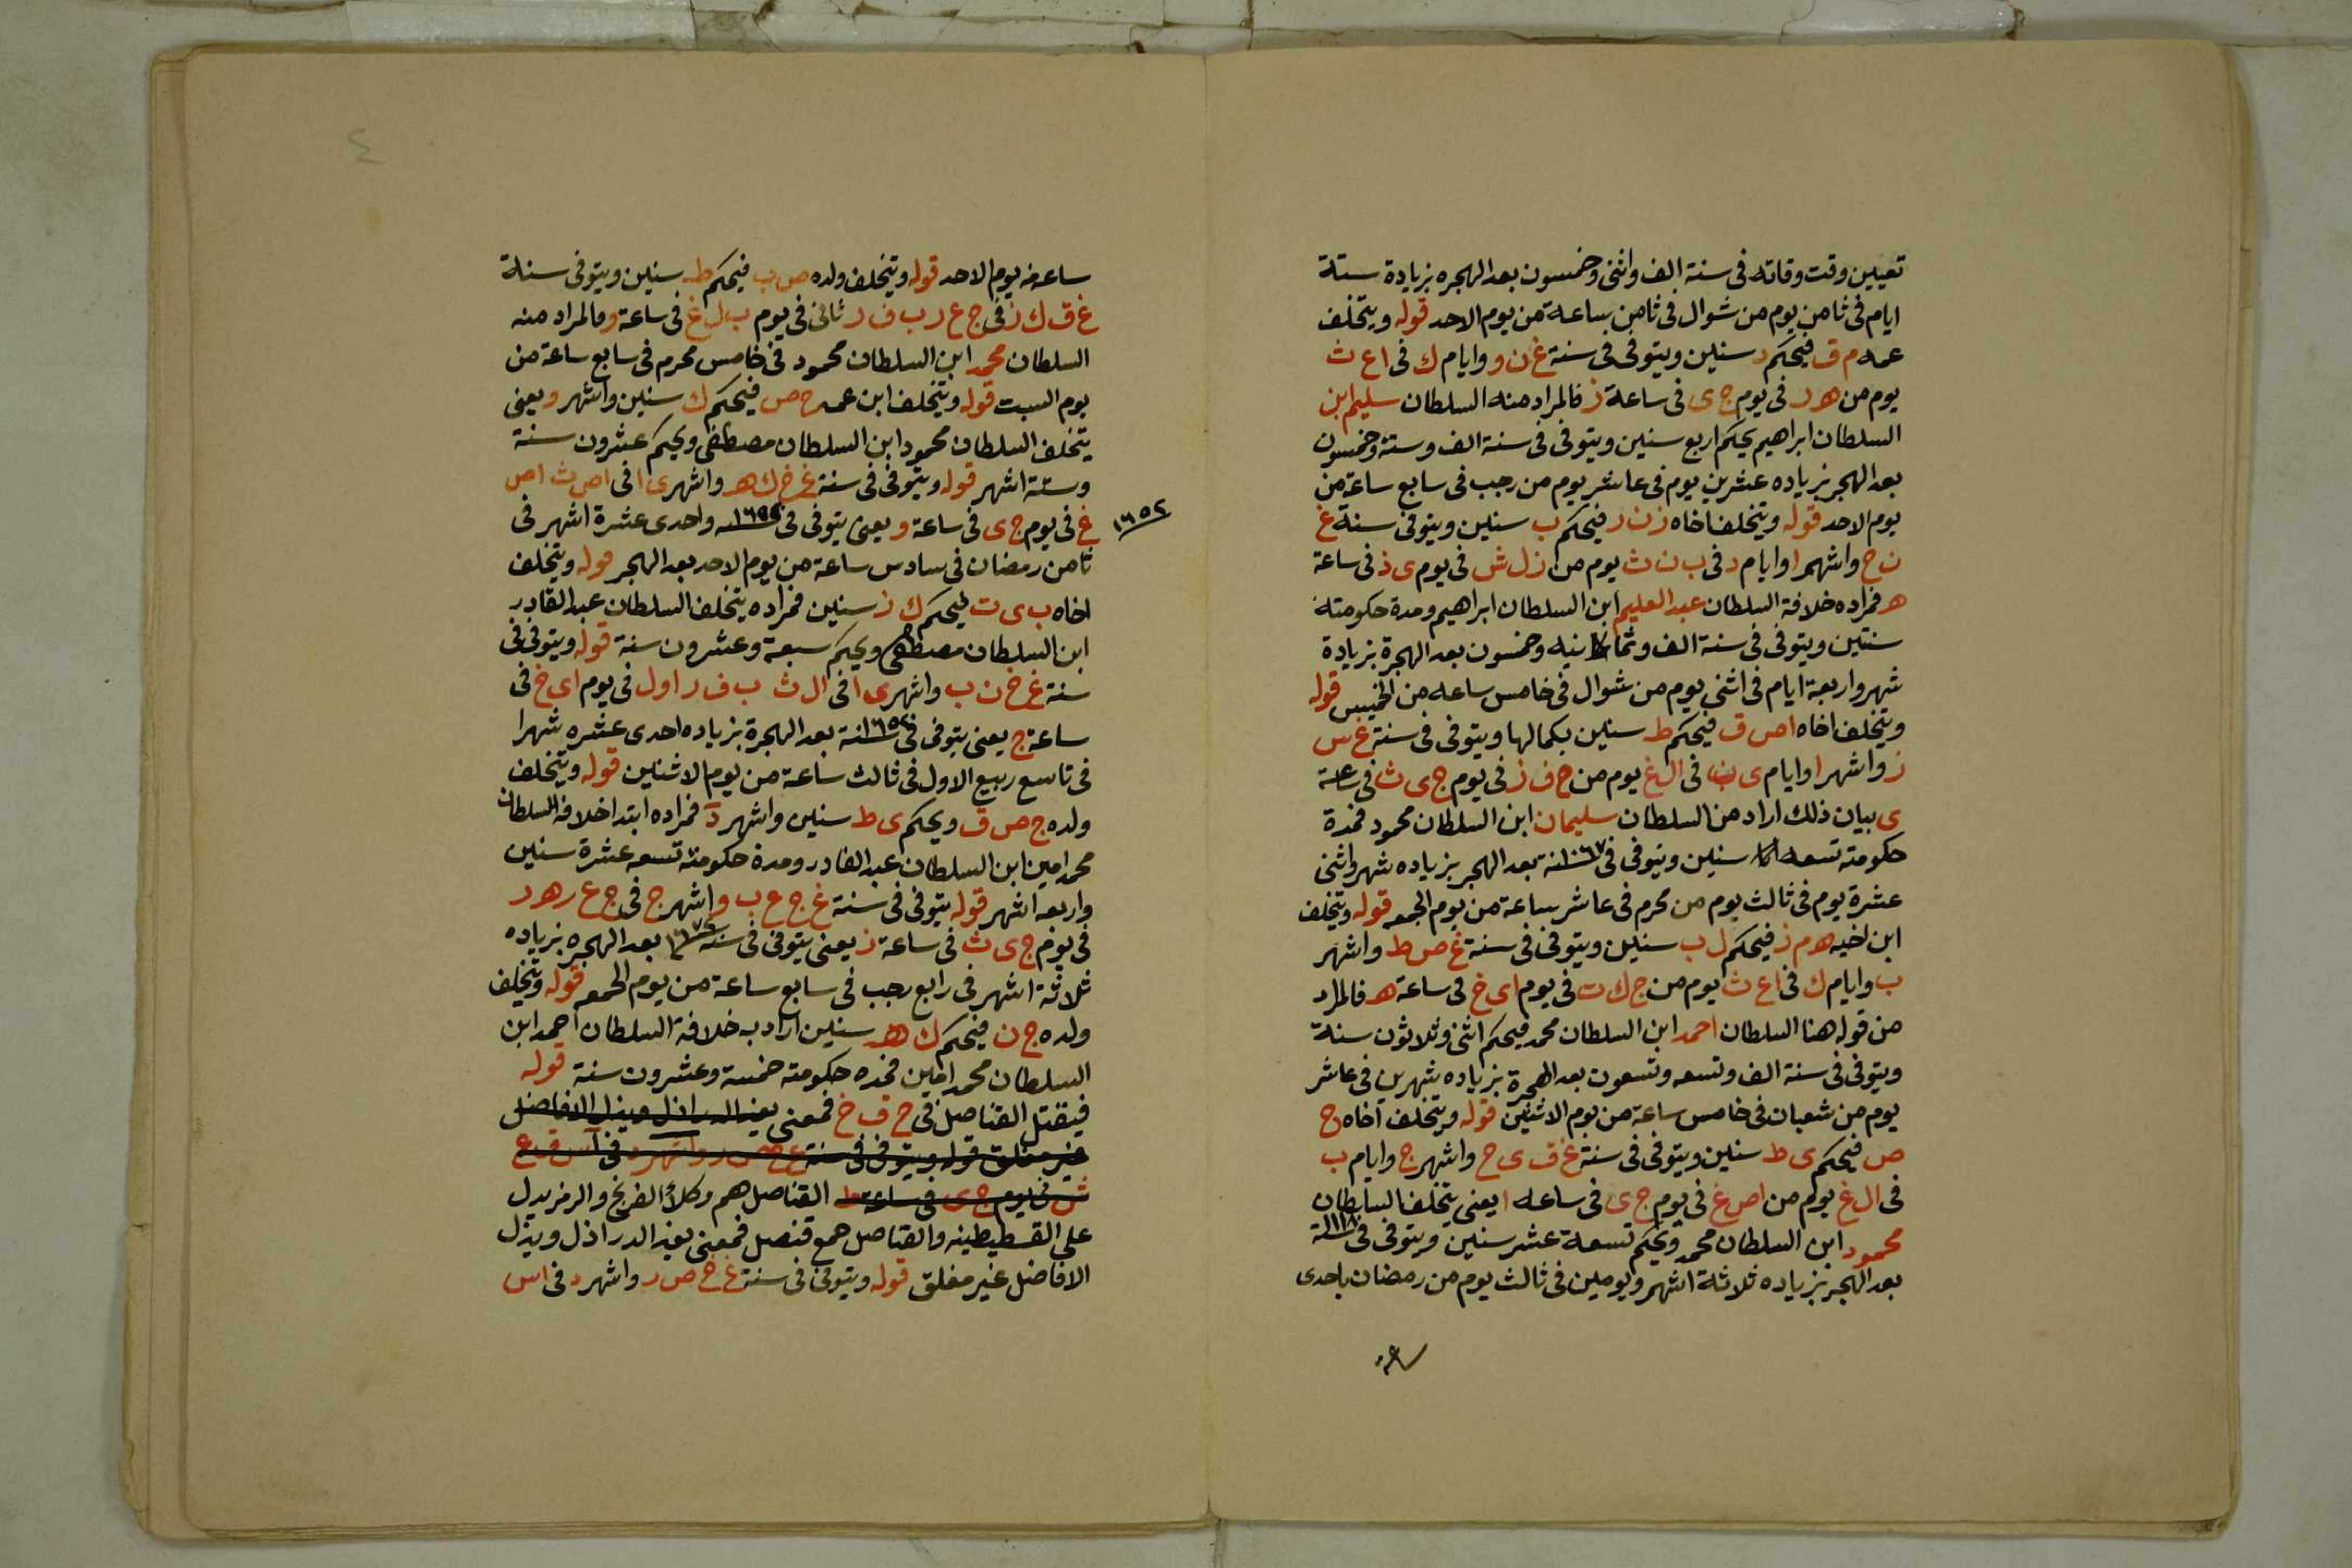 تعيين وقت وفاته فى سنة الف واثنى وخمسون بعد الهجره بزيادة ستة
ايام فى ثامن يوم من شوال فى ثامن ساعة من يوم الاحد قوله ويتخلف
عمه م ق فيحكم د سنين ويتوفى فى سنة غ ن و وايام ك فى ا ع ث
يوم من هـ ر فى يوم ج ى فى ساعة ز فالمراد منه السلطان سليم ابن
السلطان ابراهيم يحكم اربع سنين ويتوفى فى سنة الف وستة وخمسون
بعد الهجر بزياده عشرين يوم فى عاشر يوم من رجب فى سابع ساعة من
يوم الاحد قوله ويتخلف اخاه ز ن ر فيحكم ب سنين ويتوفى سنة غ
ن ح واشهر ا وايام د فى ب ن ث يوم من ز ل ش فى يوم ى ذ فى ساعة
هـ فمراده خلافة السلطان عبد العليم ابن السلطان ابراهيم ومدة حكومته
سنتين ويتوفى فى سنة الف وثمانيه وخمسون بعد الهجرة بزيادة
شهر واربعة ايام فى اثنى يوم من شوال فى خامس ساعه من الخميس قوله
ويتخلف اخاه ا ص ق فيحكم ط سنين بكمالها ويتوفى فى سنة غ س
ز واشهر ا وايام ى ب فى ال غ يوم من خ ف ز فى يوم ج ى ث فى ساعة
ى بيان ذلك اراد من السلطان سليمان ابن السلطان محمود فمدة
حكومته تسعه سنين ويتوفى فى ١٠٦٧ سنة بعد الهجر بزياده شهر واثنى
عشرة يوم فى ثالث يوم من محرم فى عاشر ساعة من يوم الجمعه قوله ويتخلف
ابن اخيه هـ م ز فيحكم ل ب سنين ويتوفى فى سنة غ ص ط واشهر
ب وايام ك فى ا ع ث يوم من ج ك ت فى يوم اى خ فى ساعة هـ فالمراد
من قوله هنا السلطان احمد ابن السلطان محمد فيحكم اثنى وثلاثون سنة
ويتوفى فى سنة الف وتسعه وتسعون بعد الهجرة بزياده شهرين فى عاشر
يوم من شعبان فى خامس ساعة من يوم الاثنين قوله ويتخلف اخاه ح
ص فيحكم ى ط سنين ويتوفى فى سنة غ ق ى ح واشهر ج وايام ب
فى ال غ يوم من ا ص غ فى يوم ج ى فى ساعه ا يعنى يتخلف السلطان
محمود ابن السلطان محمد ويحكم تسعة عشر سنين ويتوفى فى ١١١٨ سنة
بعد الهجر بزياده ثلاثة اشهر ويومين فى ثالث يوم من رمضان باحدى
ساعة
ساعة من يوم الاحد قوله ويتخلف ولده ص ب فيحكم ط سنين ويتوفى سنة
غ ق ك ز فى ج ع ر ب ف ر ثانى فى يوم ب ل غ فى ساعة و فالمراد منه
السلطان محمد ابن السلطان محمود فى خامس محرم فى سابع ساعة من
يوم السبت قوله ويتخلف ابن عمه ح ص فيحكم ك سنين واشهر و يعنى
يتخلف السلطان محمود ابن السلطان مصطفى ويحكم عشرون سنة
وستة اشهر قوله ويتوفى فى سنة غ خ ك هـ واشهر ى ا فى ا ص ث ا ص
غ فى يوم ج ى فى ساعة و يعنى يتوفى فى واحدى عشرة اشهر فى
١٦٥٢
ثامن رمضان فى سادس ساعة من يوم الاحد بعد الهجر قوله ويتخلف
اخاه ب ى ت فيحكم ك ز سنين فمراده يتخلف السلطان عبد القادر
ابن السلطان مصطفى ويحكم سبعة وعشرون سنة قوله ويتوفى فى
سنة غ خ ن ب واشهر ى ا فى ال ث ب ف ر اول فى يوم اى خ فى
ساعة ج يعنى يتوفى فى ١٦٥٢ سنة بعد الهجرة بزياده احدى عشره شهرا
فى تاسع ربيع الاول فى ثالث ساعة من يوم الاثنين قوله ويتخلف
ولده ج ص ق ويحكم ى ط سنين واشهر د فمراده ابتدا خلافة السلطان
محمد امين ابن السلطان عبد القادر ومدة حكومته تسعه عشرة سنين
واربعه اشهر قوله يتوفى فى سنة غ ج ع ب واشهر ج فى ج ع ر هـ ر
فى يوم ج ى ث فى ساعة ز يعنى يتوفى فى سنة ١٦٧٢ بعد الهجره بزياده
ثلاثة اشهر فى رابع رجب فى سابع ساعة من يوم الجمعه قوله ويتخلف
ولده ج ن فيحكم ك هـ سنين اراد ب خلافة السلطان احمد ابن
السلطان محمد امين فمده حكومته خمسة وعشرون سنة قوله
فيقتل القناصل فى ح ق خ فمعنى يعز الدراذل ويذل الافاضل
غير مغلق قوله ويتوفى فى سنة غ خ ص ر واشهر د فى ا س ق ع
ش فى يوم ج ى فى ساعة ط القناصل هم وكلأ الفرنج والرمز يدل
على القسطيطينه والقناصل جمع قنصل فمعنى يعز الدراذل ويذل
الافاضل غير مغلق قوله ويتوفى فى سنة غ خ ص ر واشهر د فى ا س
٤